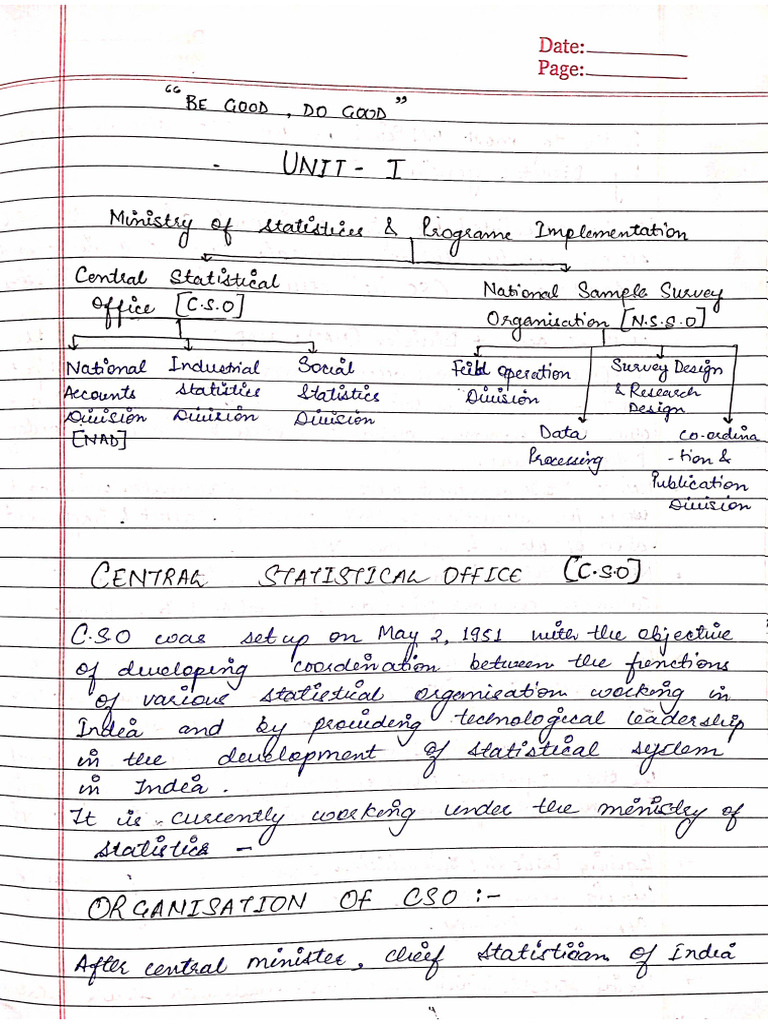 Date:
Page:
“BE GOOD, DO GOOD”
UNIT - I
Ministry of Statistics & Programe Implementation
Central Statistical
Office [C.S.O]
National Sample Survey
Organisation [N.S.S.O]
National
Accounts
Division
[NAD]
Industrial
Statistics
Division
Social
Statistics
Division
Feild Operation
Division
Data
Processing
Survey Design
& Research
Design
Co-ordina
-tion &
Publication
Division
CENTRAL STATISTICAL OFFICE [C.S.O]
C.S.O was set up on May 2, 1951 with the objective
of developing coordenation between the functions
of various statistical organisation working in
India and by providing technological leadership
in the development of statistical system
in India.
It is currently working under the ministry of
statistics -
ORGANISATION OF CSO :-
After central minister, chief statistician of India